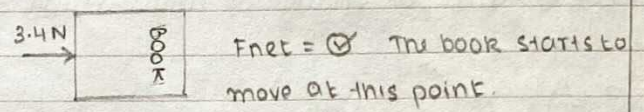 3.4N
BOOK
Fnet = The book starts to
move at this point.